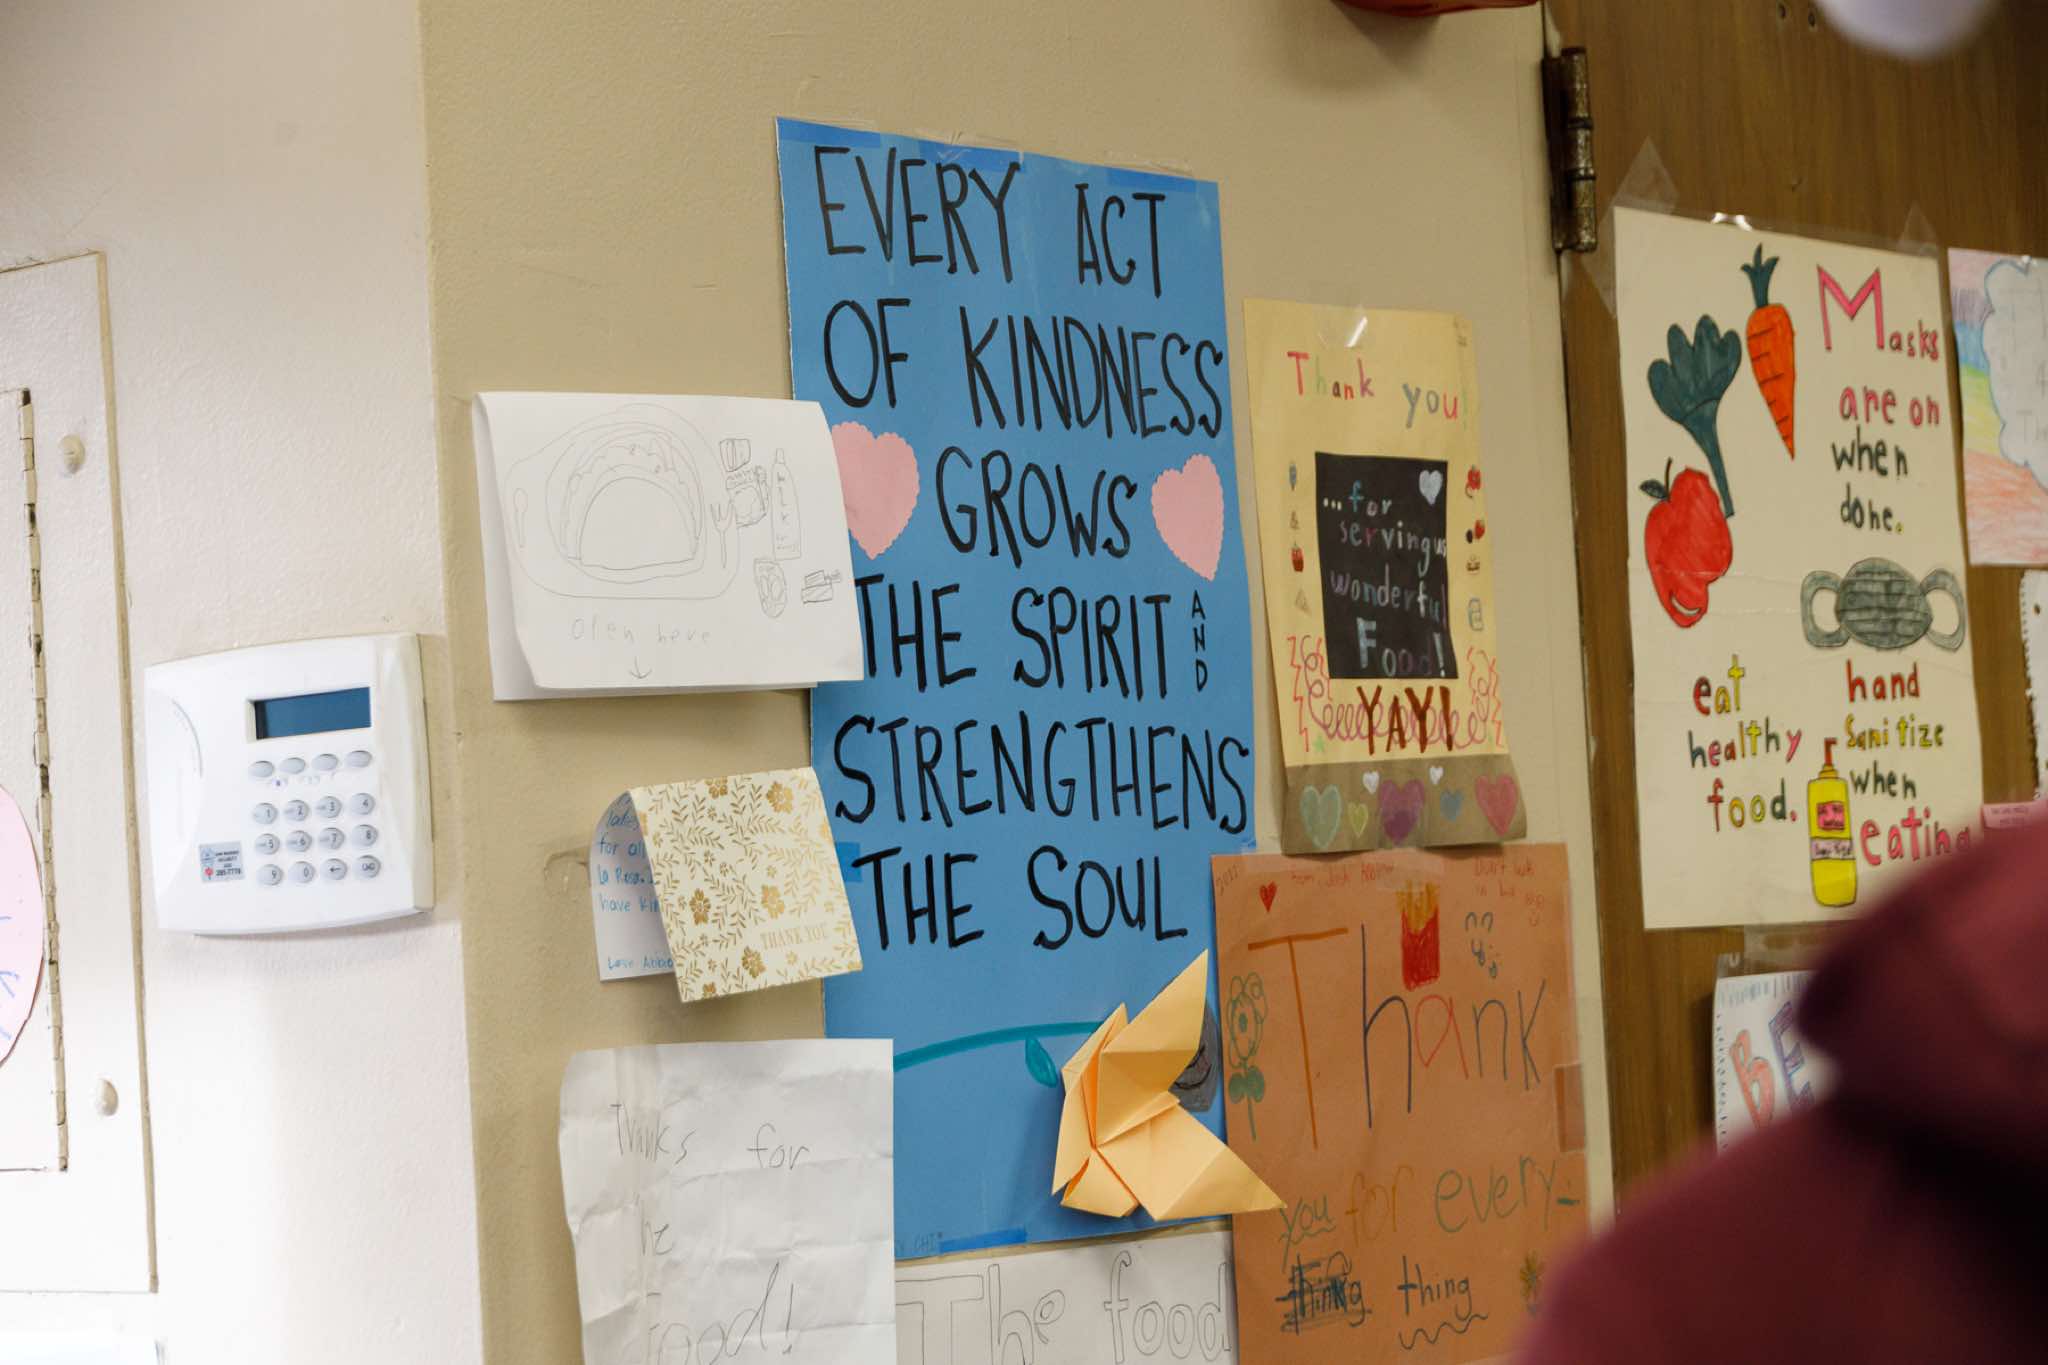 EVERY ACT
OF KINDNESS
GROWS
THE SPIRIT AND
STRENGTHENS
THE SOUL
MILK
Open here
for
la Rosa
have
Love
THANK YOU
Thanks for
The food
Thank you
...for
serving us
wonderful
Food!
YAY!
2022
Thank
you for every-
thing
Masks
are on
when
done.
eat
healthy
food.
hand
Sanitize
when
eating
BE
1 2 3 4
5 6 7 8
9 0
285-7778